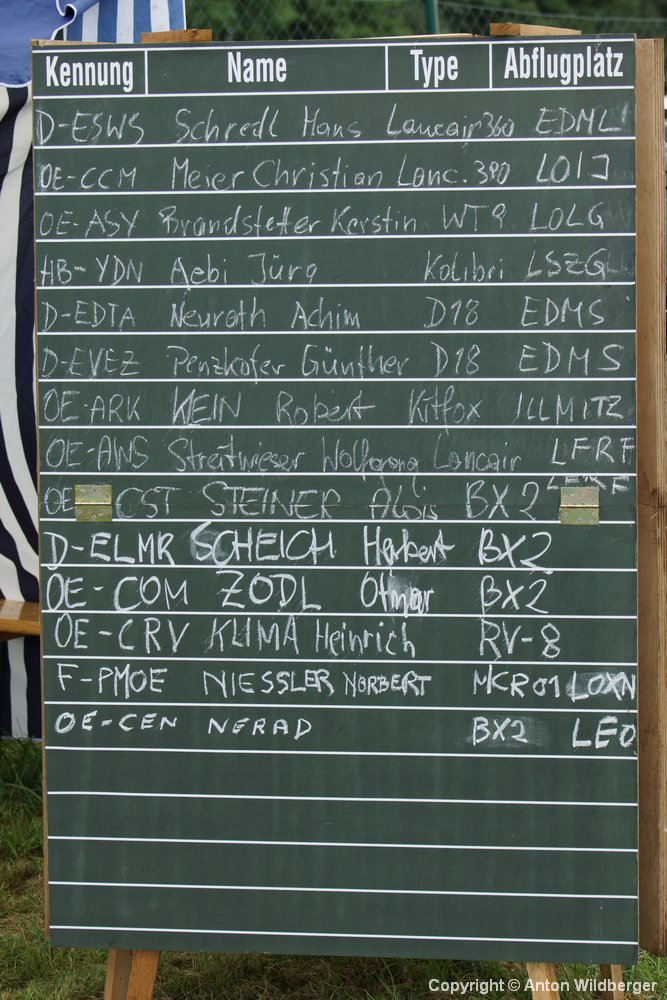 Kennung Name Type Abflugplatz
D-ESWS Schredl Hans Lancair 360 EDML
OE-CCM Meier Christian Lanc. 360 LOIJ
OE-ASY Brandstetter Kerstin WT9 LOLG
HB-YDN Aebi Jürg Kolibri LSZG
D-EDTA Neuroth Achim D18 EDMS
D-EVEZ Penzkofer Günther D18 EDMS
OE-ARK KLEIN Robert Kitfox ILLMITZ
OE-AWS Streitwieser Wolfgang Lancair LFRF
OE CST STEINER Alois BX2
D-ELMR SCHEICH Herbert BX2
OE-COM ZÖDL Otmar BX2
OE-CRV KLIMA Heinrich RV-8
F-PMOE NIESSLER NORBERT MCR01 LOXN
OE-CEN NERAD BX2
Copyright © Anton Wildberger